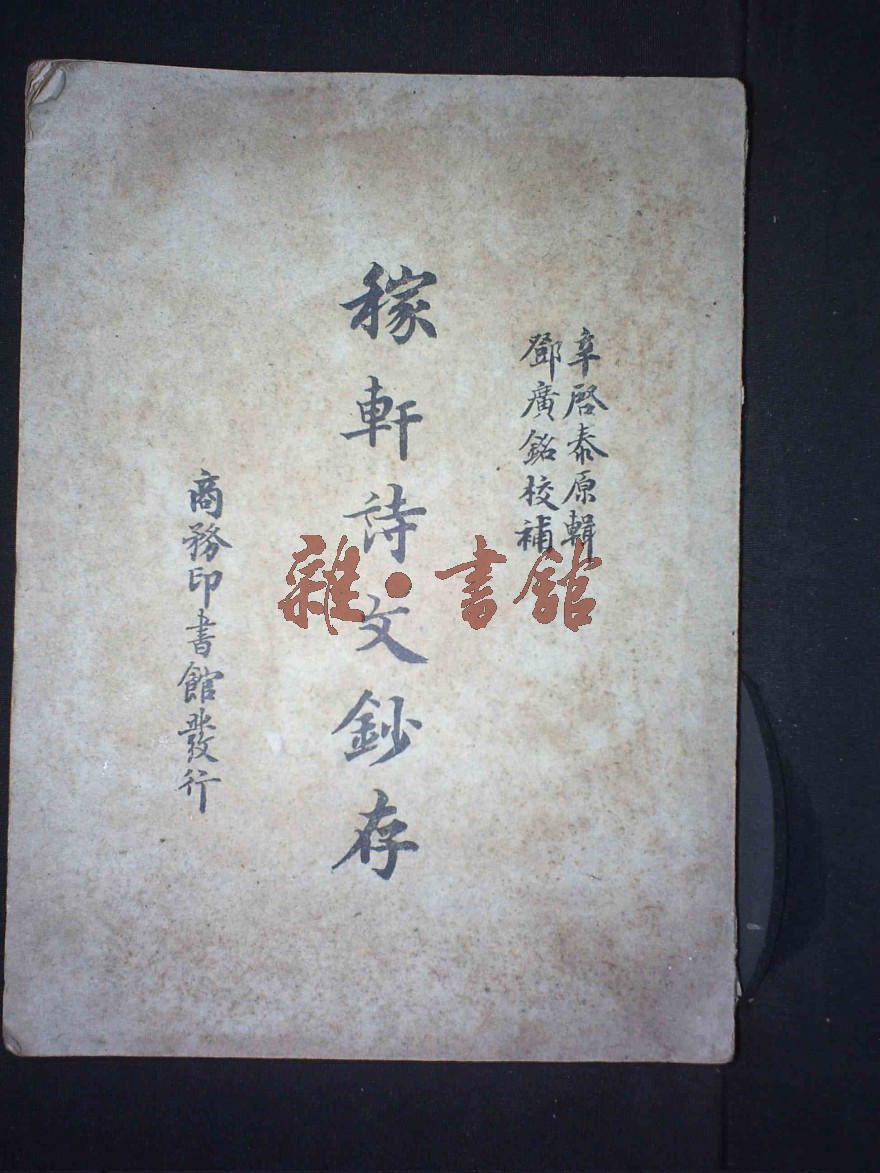 辛啓泰原輯
鄧廣銘校補
稼軒詩文鈔存
商務印書館發行
雜·書館